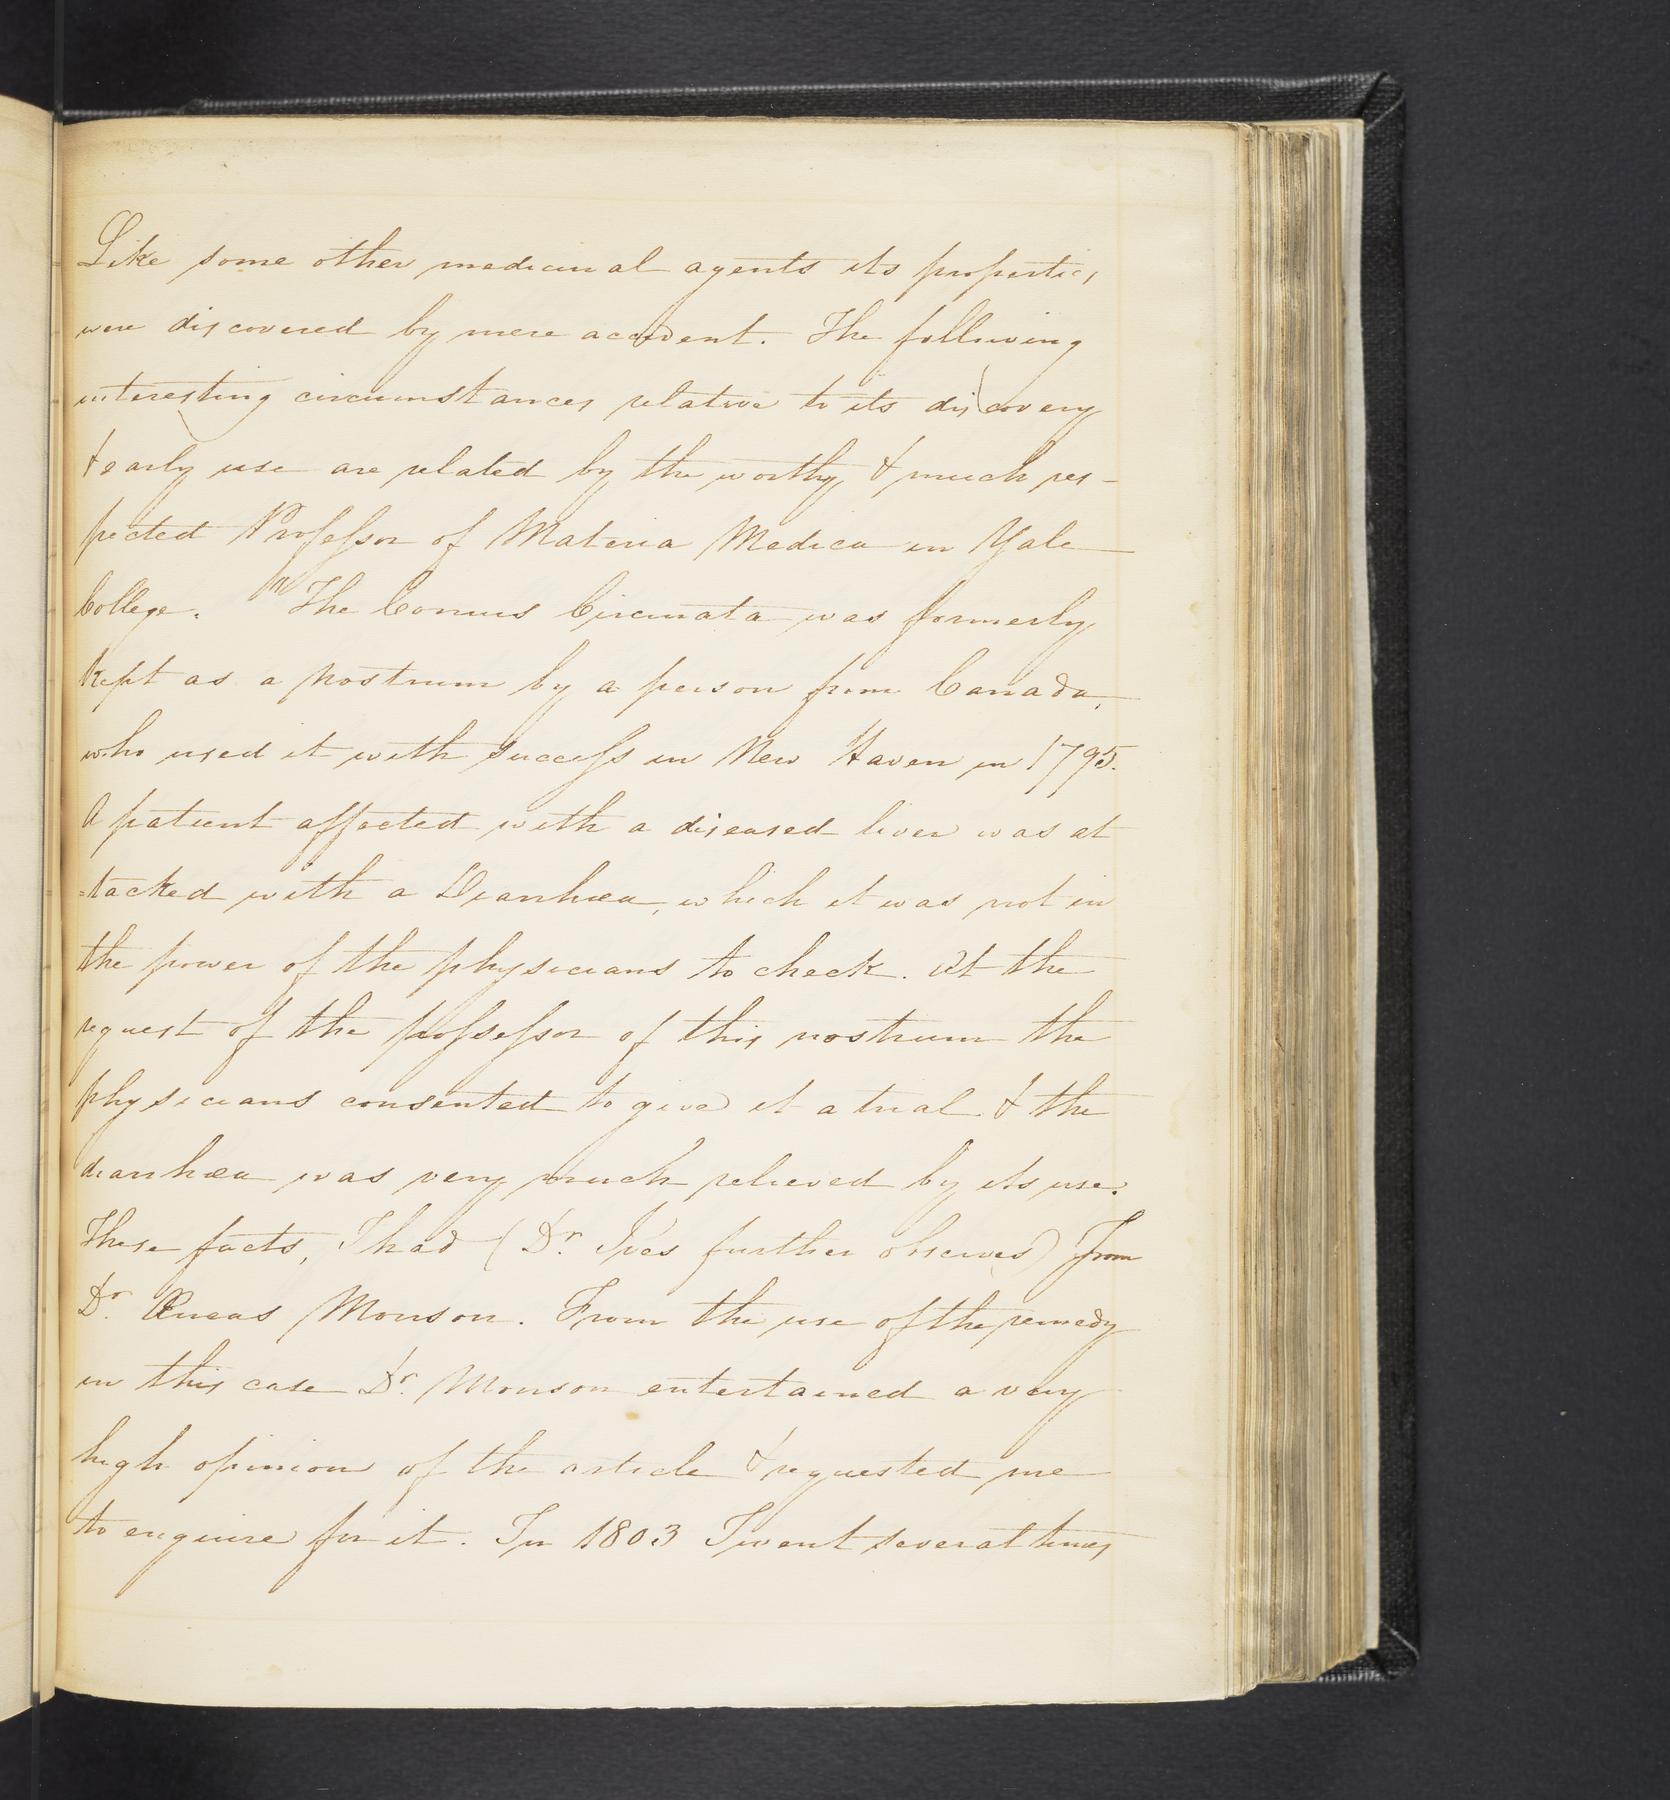 Like some other medicinal agents its properties
were discovered by mere accident. The following
interesting circumstances relative to its discovery
& early use are related by the worthy & much res-
pected Professor of Materia Medica in Yale
College. "The Cornus Circinata was formerly
kept as a nostrum by a person from Canada,
who used it with success in New Haven in 1795.
A patient affected with a diseased liver was at
=tacked with a Diarrhœa, which it was not in
the power of the physicians to check. At the
request of the possessor of this nostrum the
physicians consented to give it a trial & the
diarrhœa was very much relieved by its use.
These facts, I had (Dr. Ives further observes) from
Dr. Æneas Monson. From the use of the remedy
in this case Dr. Monson entertained a very
high opinion of the article & requested me
to enquire for it. In 1803 I went several times